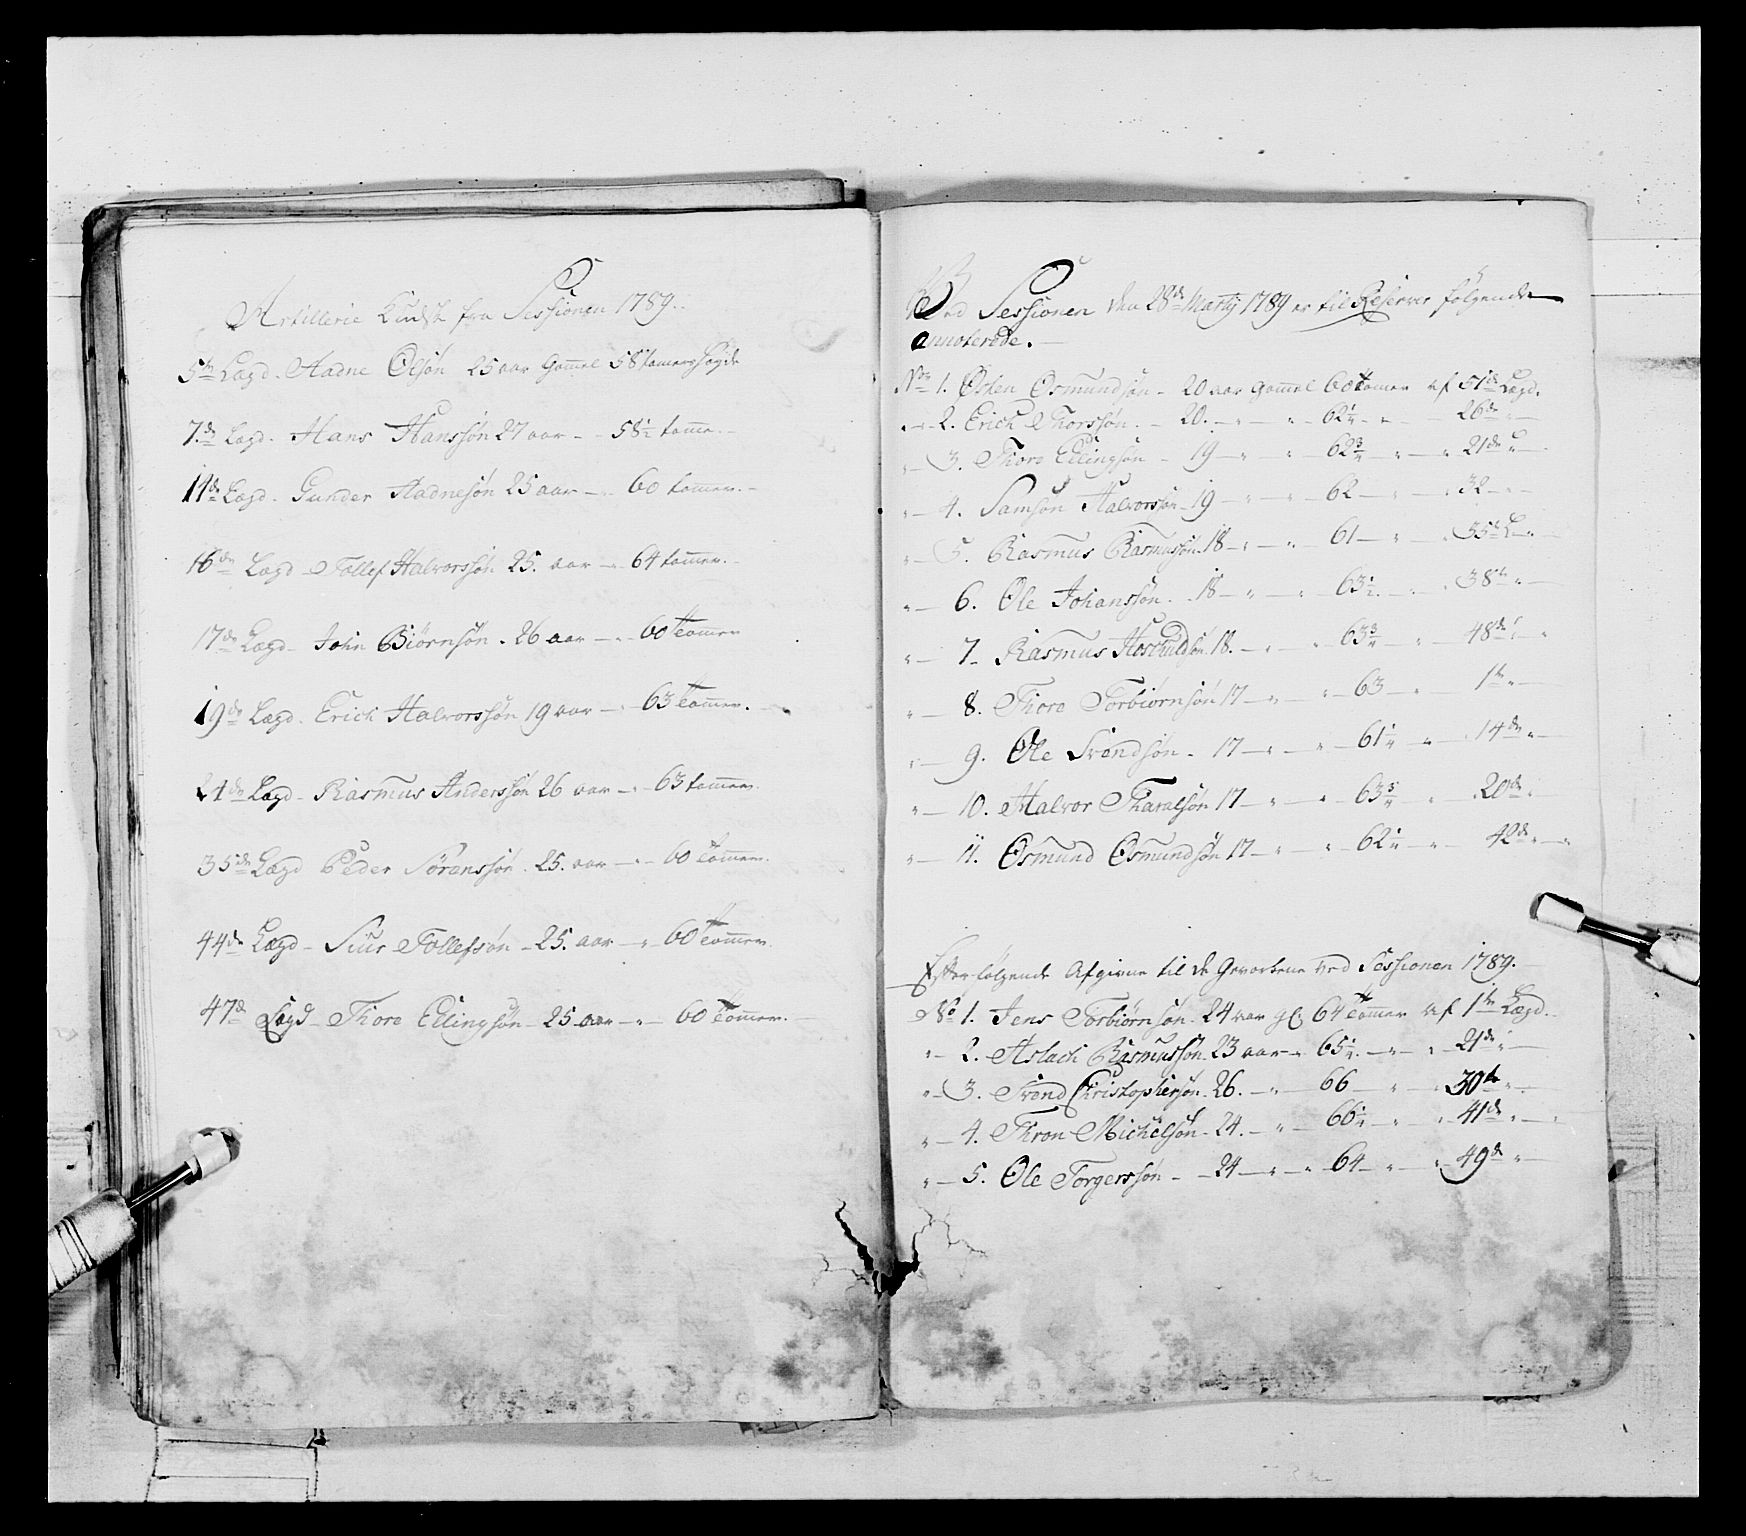 Artillerie Kudsk fra Sessionen 1789.
5te Lægd. Aadne Olsøn 25 aar Gammel 58 tomershøyde
7de Lægd. Hans Hanssøn 27 aar - - 58½ tomme.
14de Lægd. Gunder Aadnesøn 25 aar - " - 60 tommer.
16de Lægd Tollef Halvorssøn 25. aar - " 64 tommer.
17de Lægd John Biørnsøn. 26 aar - " - 60 Tommer
19de Lægd. Erich Halvorssøn 19 aar - " 63 Tommer.
21de Lægd - Rasmus Anderssøn 26 aar - " - 63 tommer.
35de Lægd Peder Sørenssøn. 25. aar - " - 60 Tommer.
44de Lægd - Siur Tollefsøn - 25. aar - " - 60 Tommer.
47de Lægd - Thore Ellingsøn - 25 aar - " - 60 Tommer.
Ved Sessionen den 28de Martij 1789 er til Reserver følgende
annoterede.
No 1. Østen Osmundsøn - 20 aar gammel 60 Tommer af 51de Lægd.
" - 2. Erich Thorssøn. - 20. - " - " 62¼ - " - 26de " -
" - 3. Thore Ellingsøn - 19 - " " 62¾ " - " 21de " -
" - 4. Samson Halvorssøn - 19 - " - " 62 - " - " 32 - " -
" - 5. Rasmus Rasmussøn. 18 - " - " 61 - " " 35de L - " -
" - 6. Ole Johanssøn. 18 - " - " 63½ - " 38te " -
" - 7. Rasmus Hoschuldsøn 18. - " - " 63¾ " - 48de " "
" - 8. Thore Torbiørnsøn 17 - " - " 63 - " - 1te " -
" - 9. Ole Svendsøn - 17 - " - " 61¼ - " - 14de " -
" - 10. Halvor Tharalsøn 17 - " - " 63¾ - " 20de " -
" - 11. Osmund Osmundsøn 17 - " - " 62¼ - " - 42de " - "
Efterfølgende Afgivne til de Gevorbene ved Sessionen 1789.
No 1. Jens Torbiørnsøn. 24 aar gl. 64 Tommer af 1te Lægd.
" - 2. Aslach Rasmussøn 23 aar - " 65¼ - " - " 21de " -
" - 3. Svend Christophersøn. 26. - " - 66 " - " 30te " -
" - 4. Thron Michelsøn - 24. - " - 66¼ - " - " 41de " -
" - 5. Ole Torgerssøn - - 24 - " - " 64 - " - " 49de " -